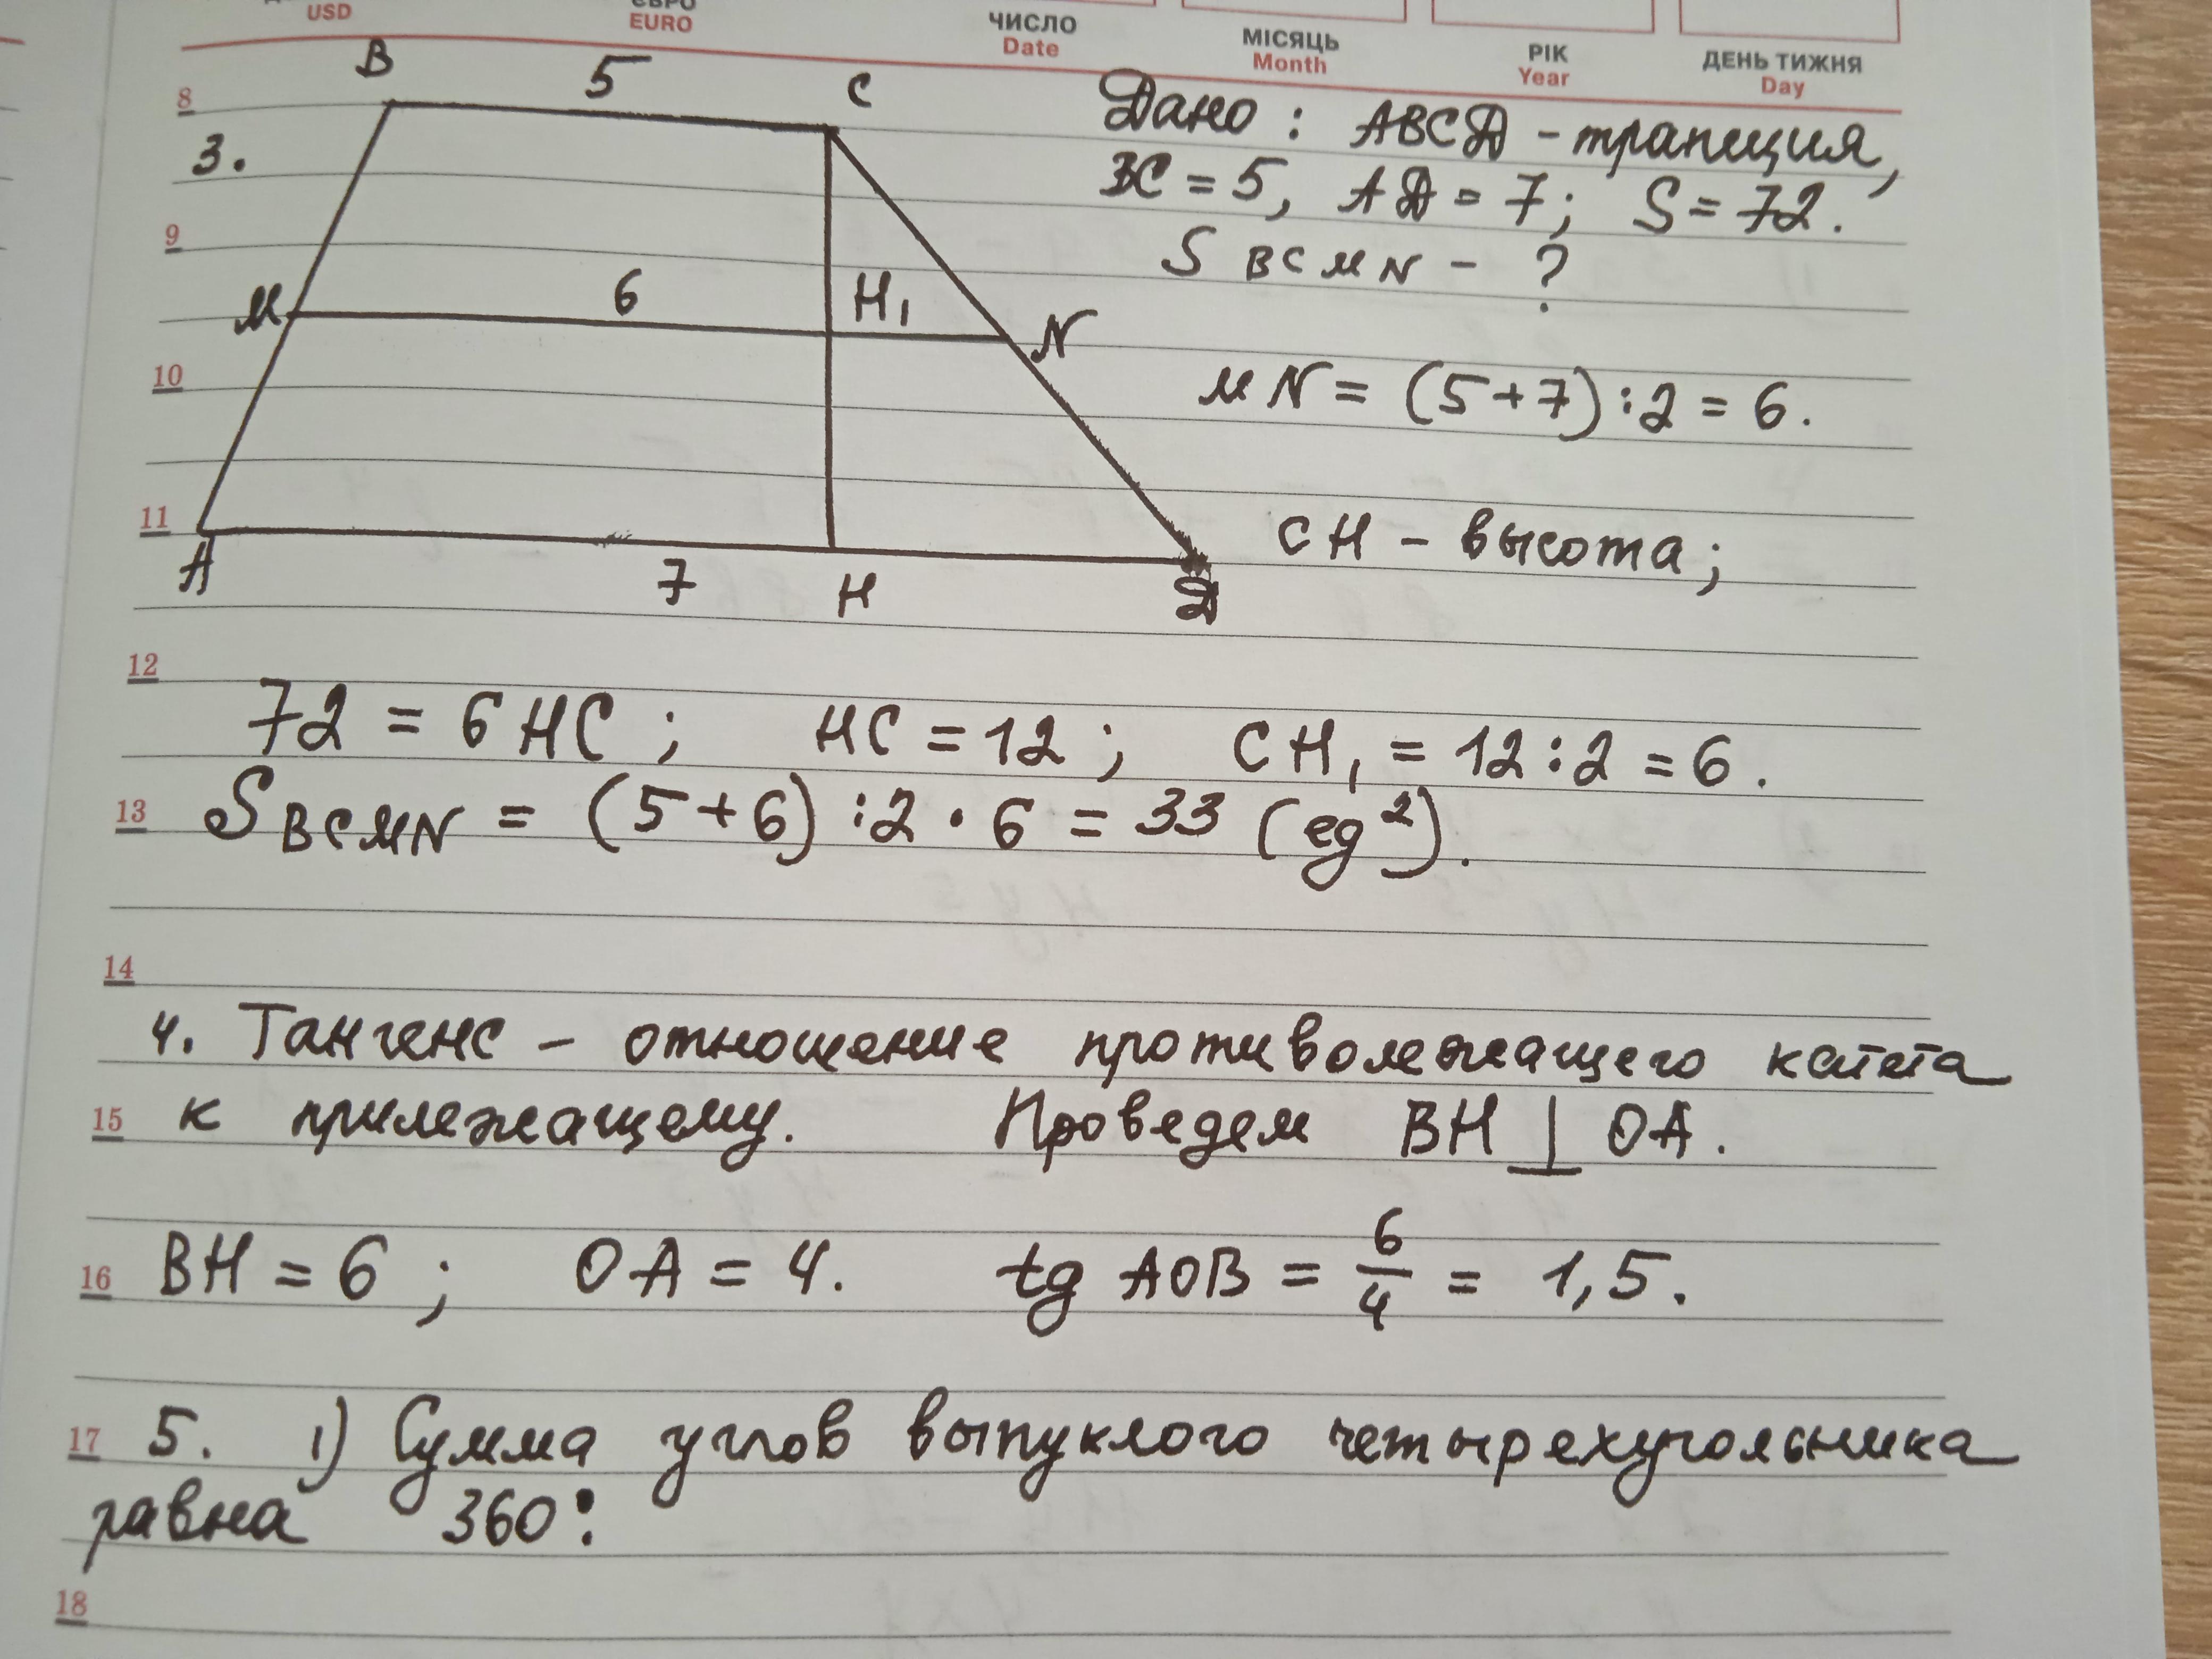 USD
ЄВРО
EURO
ЧИСЛО
Date
МІСЯЦЬ
Month
РІК
Year
ДЕНЬ ТИЖНЯ
Day
8
B 5 C
3.
Дано : ABCD - трапеция,
BC = 5, AD = 7; S = 72.
S BCMN - ?
9
M 6 H₁ N
10
MN = (5+7):2 = 6.
11
CH - высота;
A 7 H D
12
72 = 6 HC ; HC = 12 ; CH₁ = 12:2 = 6.
13
S BCMN = (5+6):2 · 6 = 33 (ед²).
14
4. Тангенс - отношение противолежащего катета
15
к прилежащему. Проведем BH ⊥ OA.
16
BH = 6 ; OA = 4. tg AOB = 6/4 = 1,5.
17
5. 1) Сумма углов выпуклого четырехугольника
равна 360°.
18